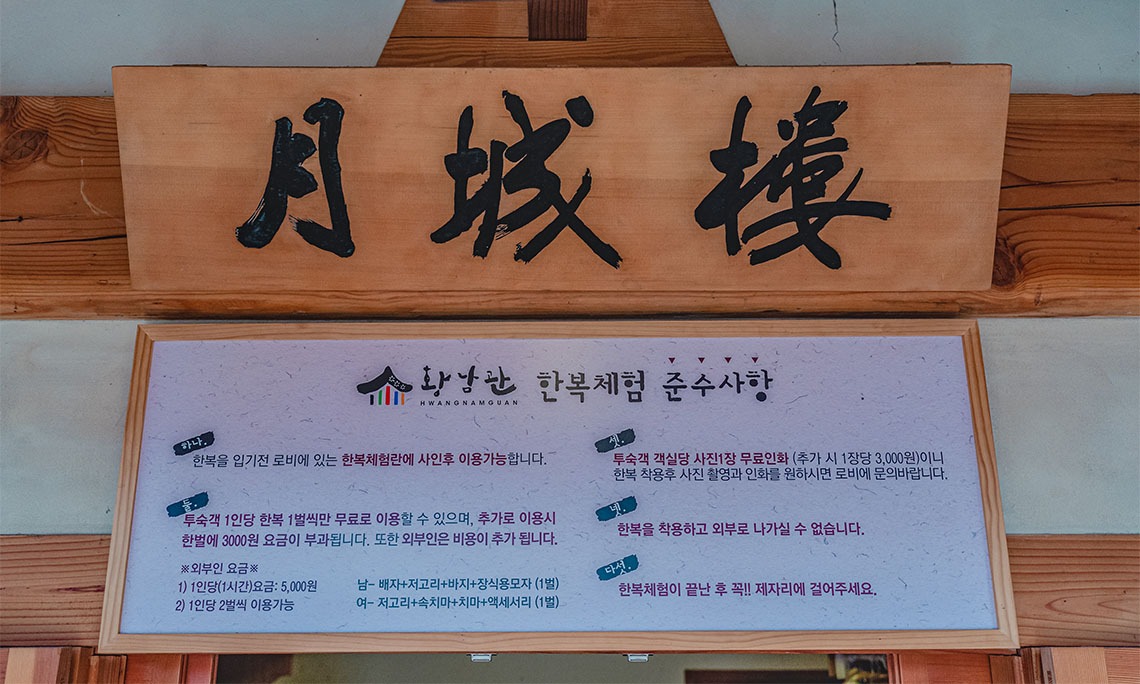 月城樓
황남관 한복체험 준수사항
HWANGNAMGUAN
하나.
한복을 입기전 로비에 있는 한복체험란에 사인후 이용가능합니다.
둘.
투숙객 1인당 한복 1벌씩만 무료로 이용할 수 있으며, 추가로 이용시
한벌에 3000원 요금이 부과됩니다. 또한 외부인은 비용이 추가 됩니다.
※외부인 요금※
1) 1인당(1시간)요금: 5,000원
2) 1인당 2벌씩 이용가능
남- 배자+저고리+바지+장식용모자 (1벌)
여- 저고리+속치마+치마+액세서리 (1벌)
셋.
투숙객 객실당 사진1장 무료인화 (추가 시 1장당 3,000원)이니
한복 착용후 사진 촬영과 인화를 원하시면 로비에 문의바랍니다.
넷.
한복을 착용하고 외부로 나가실 수 없습니다.
다섯.
한복체험이 끝난 후 꼭!! 제자리에 걸어주세요.